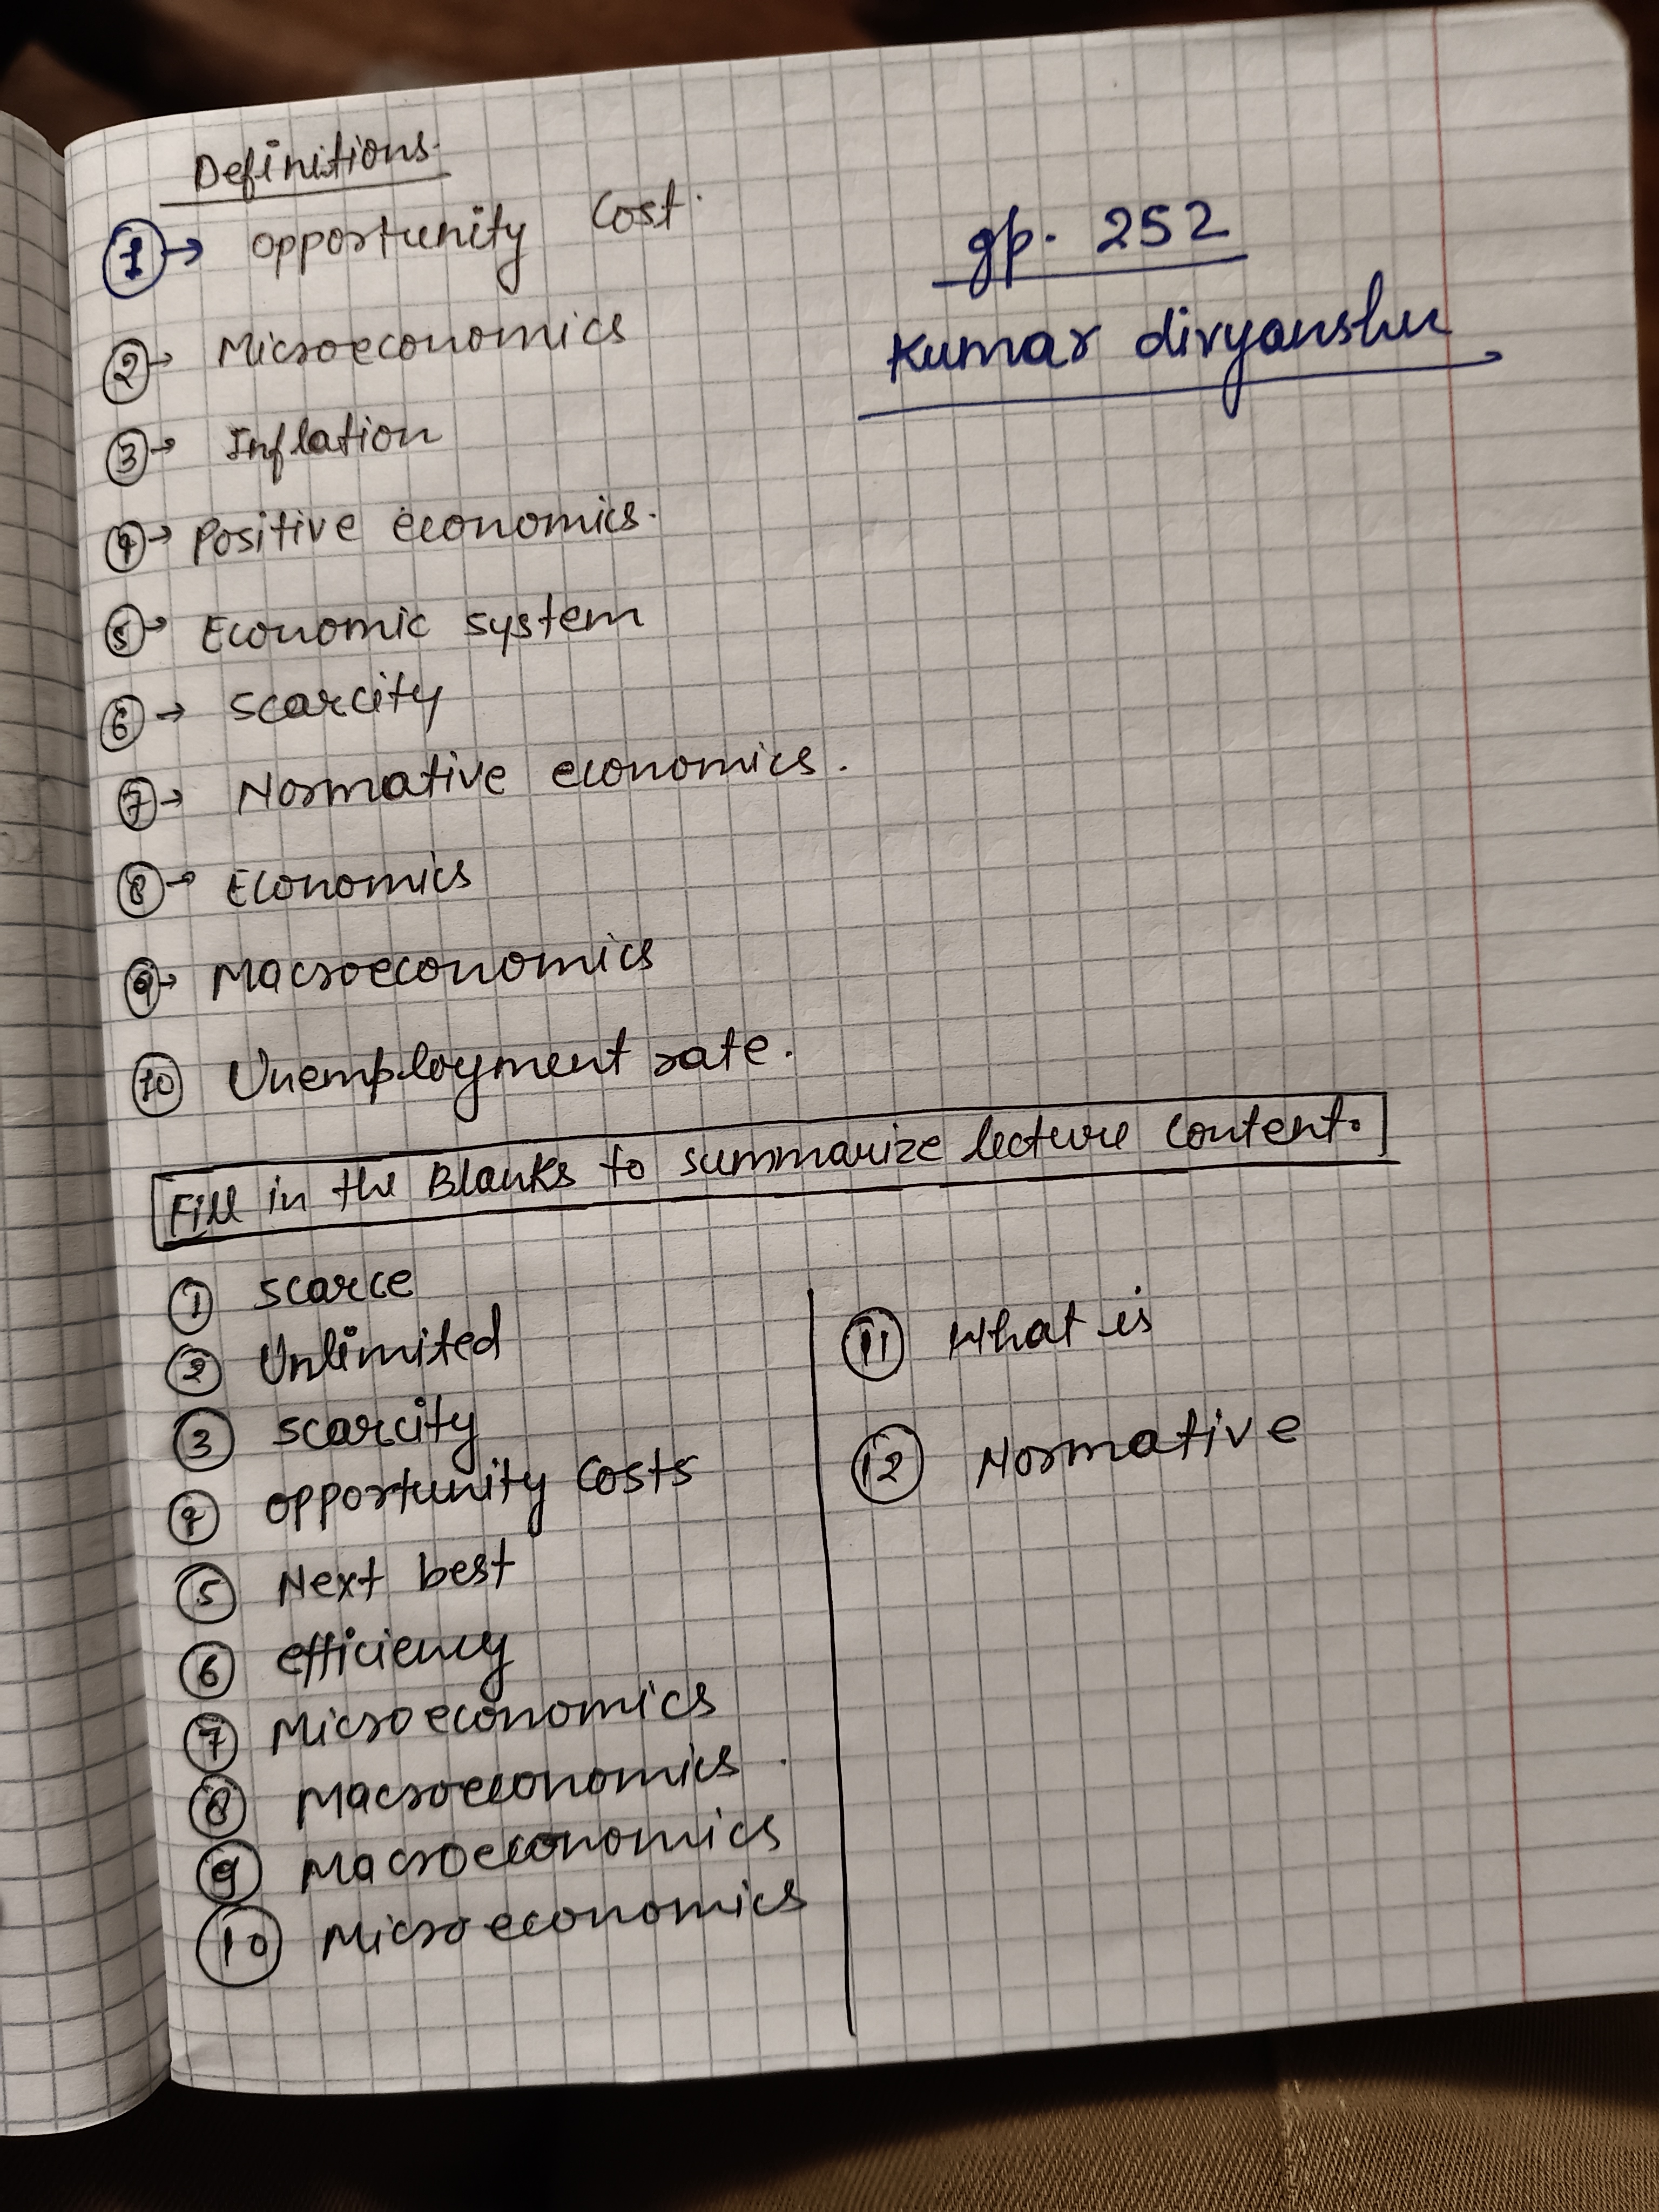 Definitions.
1 → opportunity Cost.
gp. 252
Kumar divyanshu
2 → Microeconomics
3 → Inflation
4 → Positive economics.
5 → Economic system
6 → scarcity
7 → Normative economics.
8 → Economics
9 → Macroeconomics
10 Unemployment rate.
Fill in the Blanks to summarize lecture content.
1 scarce
2 Unlimited
3 scarcity
4 opportunity Costs
5 Next best
6 efficiency
7 Microeconomics
8 Macroeconomics.
9 Macroeconomics
10 Microeconomics
11 What is
12 Normative